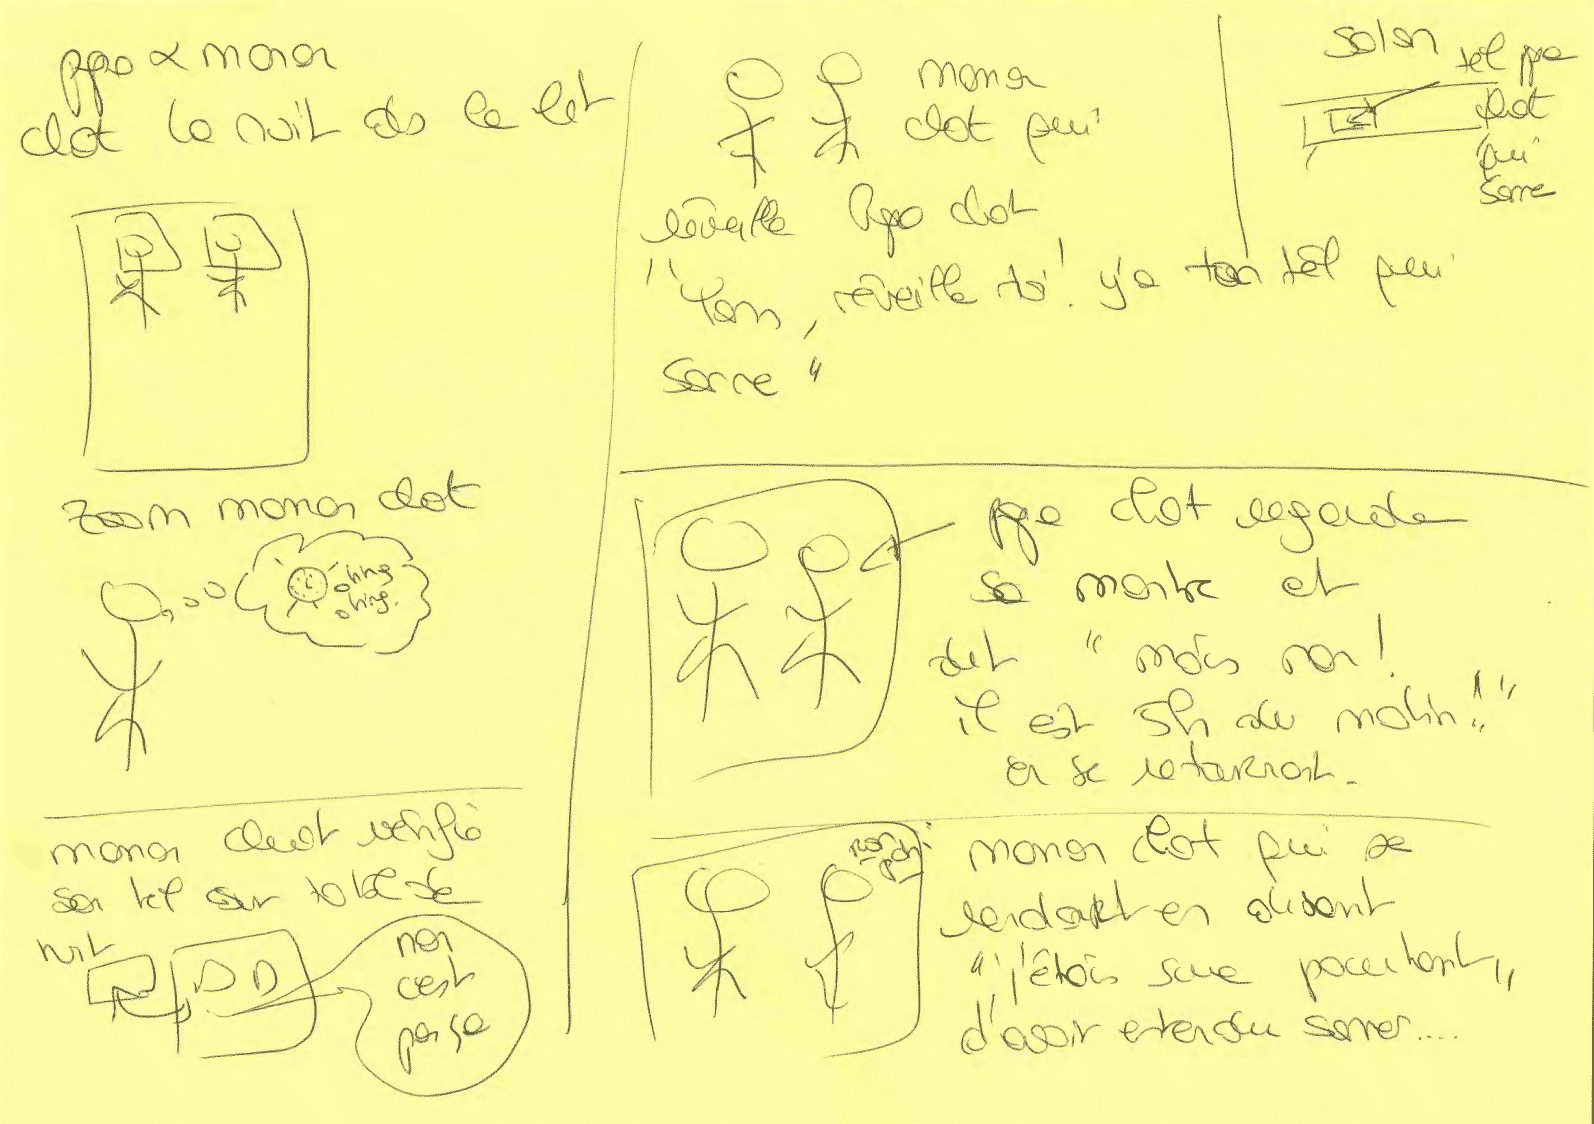 papa & maman
chat la nuit ds le lit
zoom maman chat
dring
dring.
maman chat vérifie
son tel sur table de
nuit
non
c'est
pas ça
maman
chat qui
réveille papa chat
"Yann, réveille toi! y'a ton tél qui
sonne"
salon
tél papa
chat
qui
sonne
papa chat regarde
sa montre et
dit "mais non!
il est 5h du matin!!"
en se retournant.
ron
pchi
maman chat qui se
rendort en disant
"j'étais sure pourtant,,
d'avoir entendu sonner....